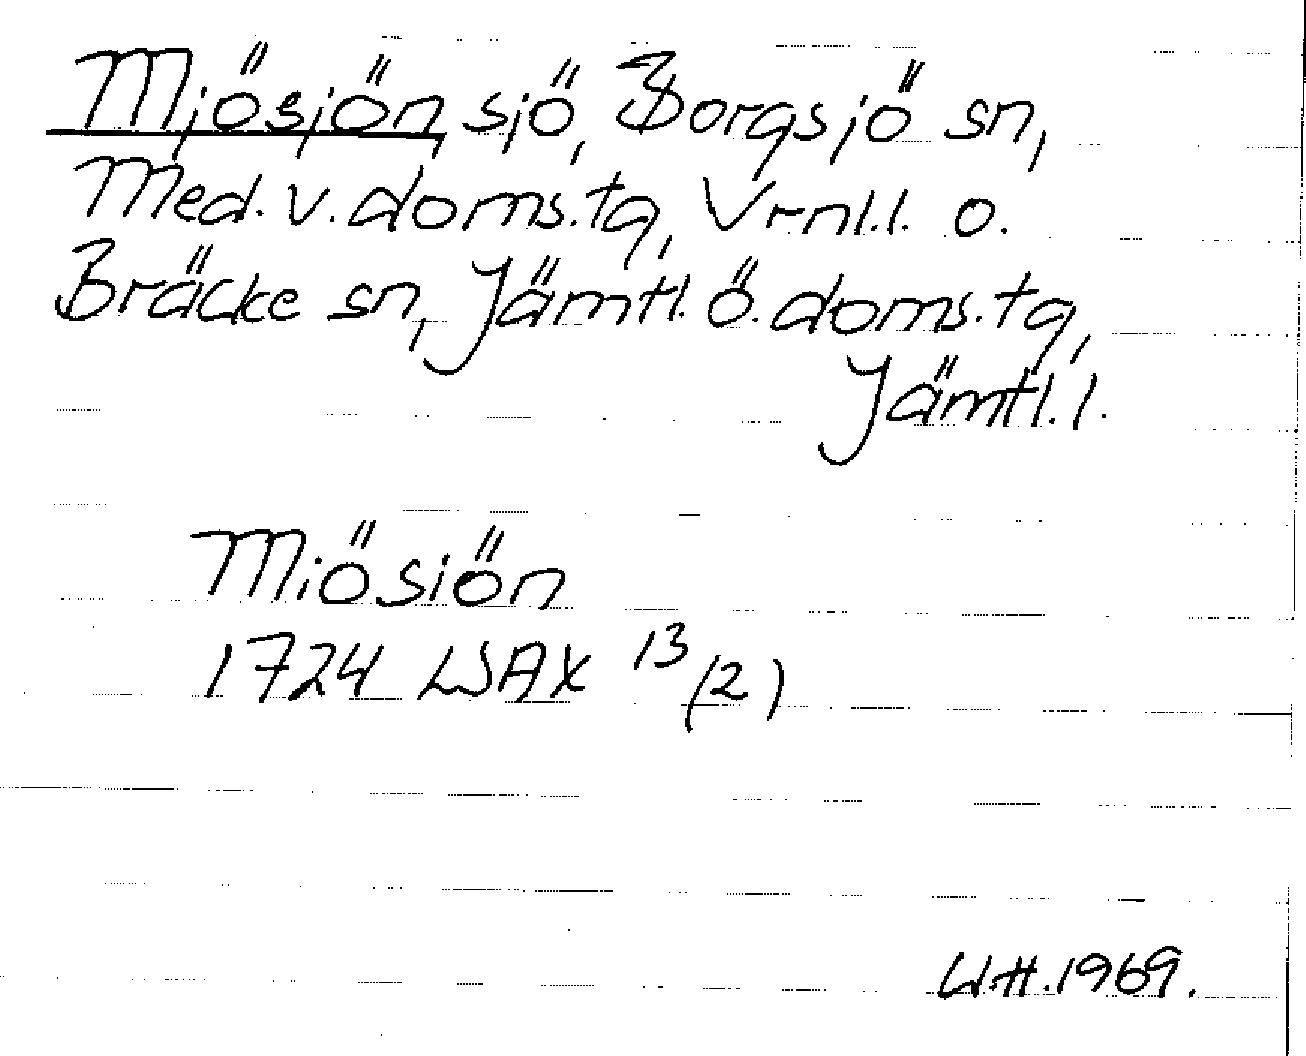 Mjösjön, sjö, Borgsjö sn,
Med. v. doms.tg, Vrnl.l. o.
Bräcke sn, Jämtl. ö. doms.tg,
Jämtl.l.
Miösiön
1724 LSAX 13/(2)
U.H. 1969.